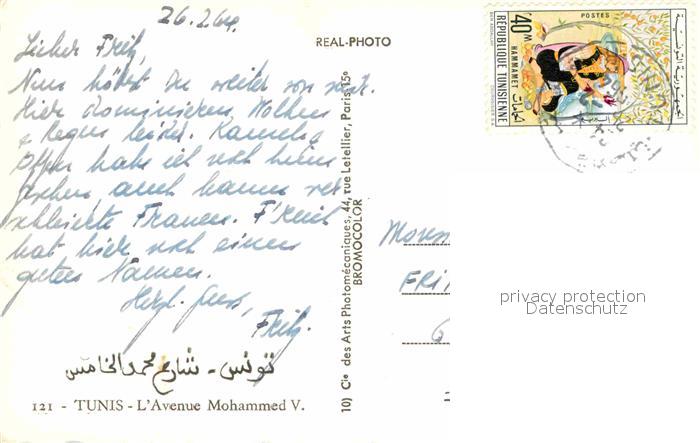 26.2.64.
Lieber Fritz,
Nun hörst Du weiter von mir.
Hier dominieren Wolken
& Regen leider. Kamele &
Affen habe ich noch keine
gesehen, auch kaum ver-
schleierte Frauen. F'reich
hat hier noch einen
guten Namen.
Herzl. Gruss,
Fritz.
تونس - شارع محمد الخامس
121 - TUNIS - L'Avenue Mohammed V.
REAL-PHOTO
10) Cie des Arts Photomécaniques, 44, rue Letellier, Paris 15e
BROMOCOLOR
40M
POSTES
HAMMAMET
RÉPUBLIQUE TUNISIENNE
الحمامات
البريد
الجمهورية التونسية
Mons
FRI
6
privacy protection
Datenschutz